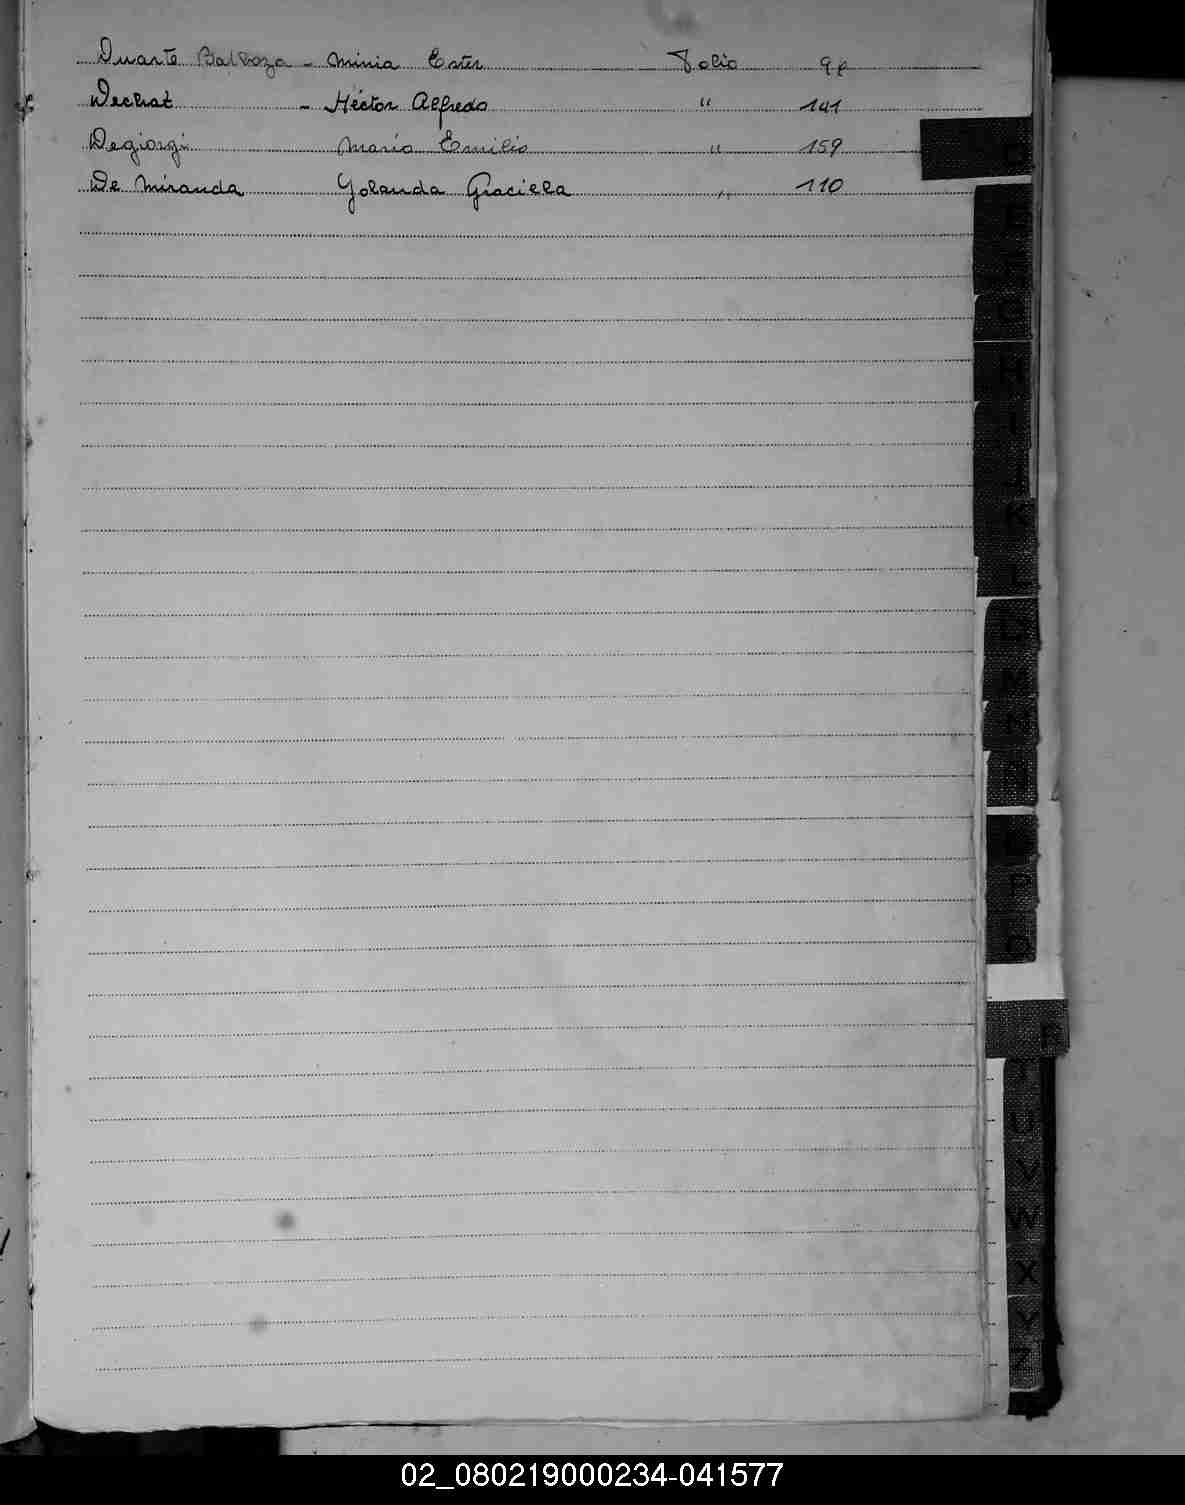 Duarte Balboza - Minia Ester Folio 98
Dechat - Héctor Alfredo " 141
Degiorgi Mario Emilio " 159
De Miranda Yolanda Graciela " 110
D
E
G
H
I
J
K
L
M
N
P
U
V
W
X
Y
Z
02_080219000234-041577